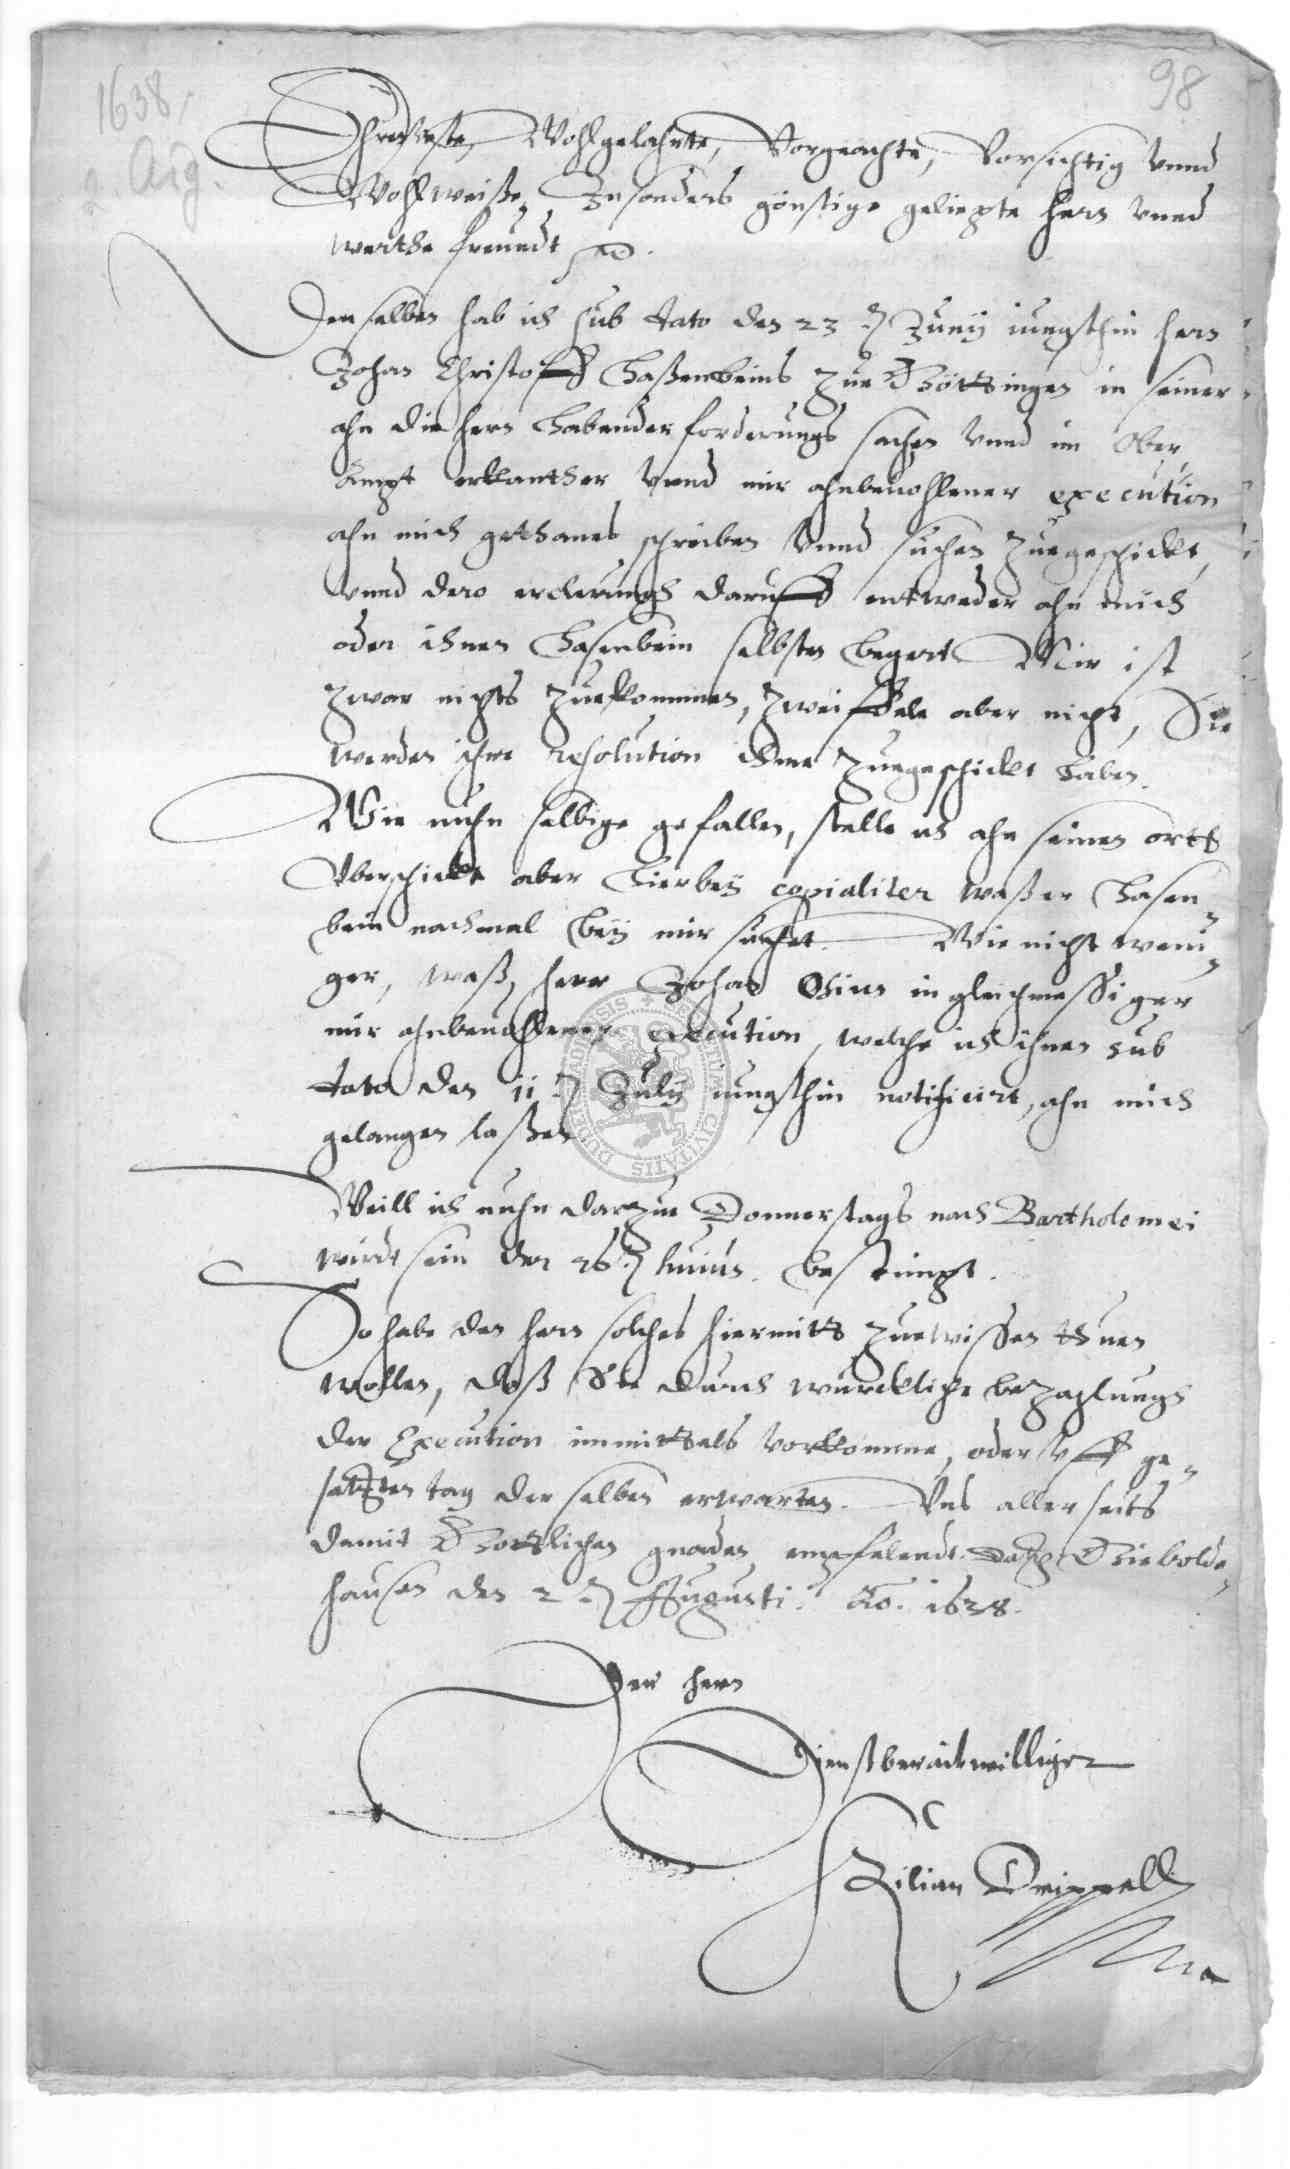 1638.
2. Aug.
98
Ehrnveste, Wohlgelahrte, Vorgeachte, Vorsichtig vnnd
Wohlweiße, Insonders günstige geliepte hern vnnd
werthe freundt
Denselben hab ich sub dato den 23. Junÿ jungsthin hern
Johan Christoff Haßenbeins zue Göttingen in seiner
ahn die hern habender forderungs sachen vnnd im Ober
Ampt erkanther vnnd mir ahnbeuohlener execution
ahn mich gethanes schreiben vnnd suchen zuegeschickt,
vnnd dero erclerungh daruff entweder ahn mich
oder ihnen Hasenbein selbsten begert. Mir ist
zwar nichts zuekommen, zweiffele aber nicht, Sie
werden ihre resolution ihme zuegeschickt haben.
Wie nuhn selbige gefallen, stelle ich ahn seinen ortt
Vberschickt aber hierbeÿ copialiter waß er Hasen-
bein nachmal beÿ mir suchet. Wie nicht weni-
ger, waß, herr Johan in gleichmessiger
mir ahnbeuohlener execution, welche ich ihnen sub
dato den 11. Julÿ jungsthin notificirt, ahn mich
gelangen laßen.
Weill ich nuhn darzue Donnerstags nach Bartholomei
wirdt sein der 26. huius. bestimpt.
So habe den hern solches hiermitt zuewissen thuen
wollen, daß Sie durch würckliche bezahlungh
der Execution immittels vorkomme, oder vff ge-
satzten tag derselben erwarten. Vns allerseits
damit Gottlichen gnaden empfelendt. Datum Giebolde-
hausen den 2. Augusti. Ao. 1638.
Der hern
Dienstbereitwilliger
Kilian
SIGILLUM CIVITATIS